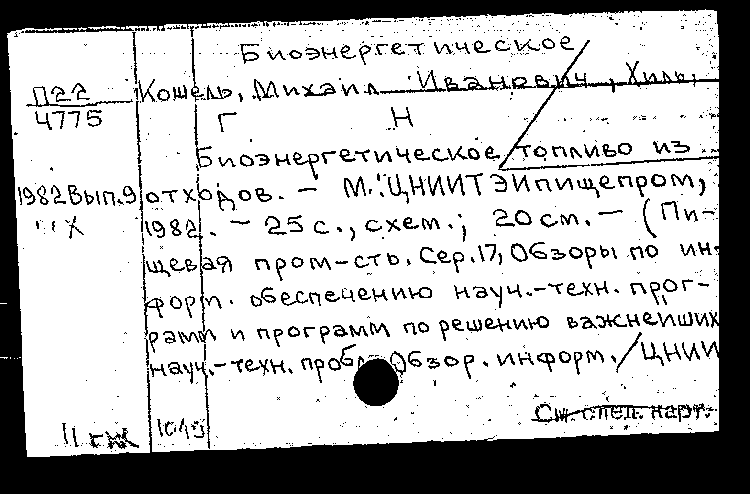 Биоэнергетическое
П22 Кошель, Михаил Иванович, Хиль,
4775 Г Н
Биоэнергетическое топливо из
1982 Вып.9 отходов. — М.: ЦНИИТЭИпищепром,
"X 1982. — 25 с., схем.; 20 см. — (Пи-
щевая пром-сть. Сер.17, Обзоры по ин-
форм. обеспечению науч.-техн. прог-
рамм и программ по решению важнейших
науч.-техн. пробл. Обзор. информ. / ЦНИИ
См. спец. карт.
11